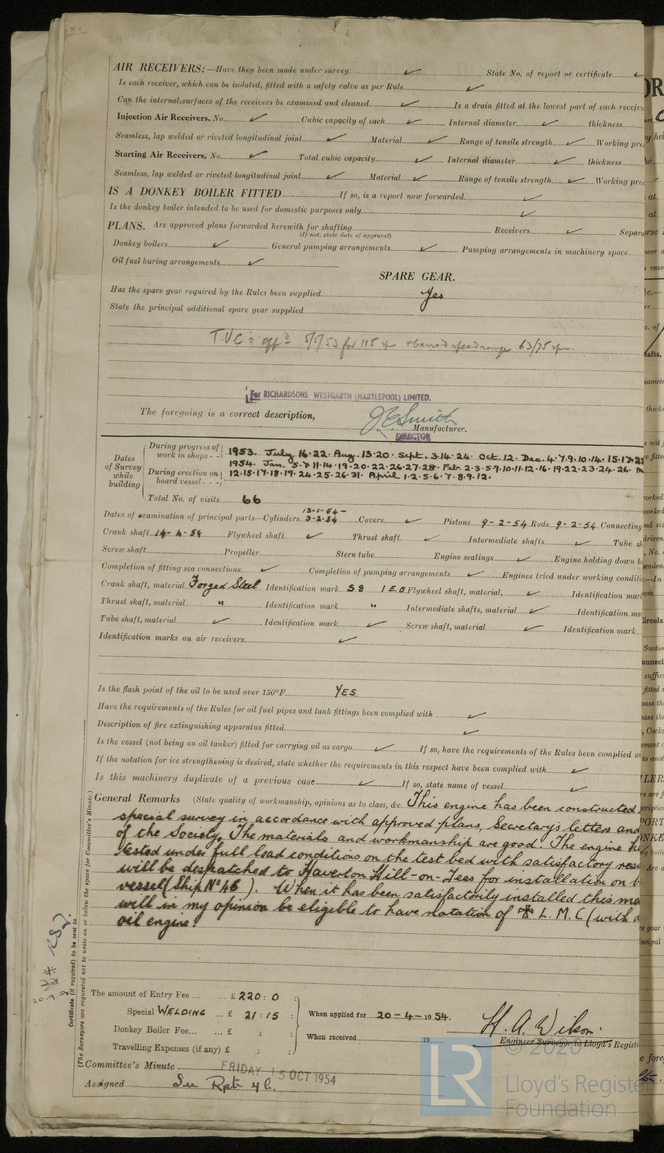 AIR RECEIVERS:—Have they been made under survey ✓ State No. of report or certificate ✓
Is each receiver, which can be isolated, fitted with a safety valve as per Rule ✓
Can the internal surfaces of the receivers be examined and cleaned ✓ Is a drain fitted at the lowest part of each receive
Injection Air Receivers, No. ✓ Cubic capacity of each ✓ Internal diameter ✓ thickness
Seamless, lap welded or riveted longitudinal joint ✓ Material ✓ Range of tensile strength ✓ Working pre
Starting Air Receivers, No. ✓ Total cubic capacity ✓ Internal diameter ✓ thickness
Seamless, lap welded or riveted longitudinal joint ✓ Material ✓ Range of tensile strength ✓ Working pre
IS A DONKEY BOILER FITTED If so, is a report now forwarded ✓
Is the donkey boiler intended to be used for domestic purposes only ✓
PLANS. Are approved plans forwarded herewith for shafting Receivers ✓ Separ
(If not, state date of approval)
Donkey boilers ✓ General pumping arrangements ✓ Pumping arrangements in machinery space
Oil fuel buring arrangements ✓
SPARE GEAR.
Has the spare gear required by the Rules been supplied Yes
State the principal additional spare gear supplied
T.V.C's 5/5/53 for 115 63/75
For RICHARDSONS WESTGARTH (HARTLEPOOL) LIMITED.
The foregoing is a correct description, J E Smith
Manufacturer.
DIRECTOR
Dates of Survey while building
During progress of work in shops - - 1953. July 16·22· Aug. 13·20· Sept. 3·14·24· Oct. 12· Dec. 4·7·9·10·14·15·17·
1954. Jan. 5·7·11·14·19·20·22·26·27·28· Feb. 2·3·5·9·10·11·12·16·19·22·23·24·26· M
During erection on board vessel - - 12·15·17·18·19·24·25·26·31· April 1·2·5·6·7·8·9·12·
Total No. of visits 66
Dates of examination of principal parts—Cylinders 13-1-54— 3-2-54 Covers ✓ Pistons 9-2-54 Rods 9-2-54 Connecting
Crank shaft 14-4-54 Flywheel shaft ✓ Thrust shaft ✓ Intermediate shafts ✓ Tube sh
Screw shaft Propeller Stern tube Engine seatings ✓ Engine holding down b
Completion of fitting sea connections ✓ Completion of pumping arrangements ✓ Engines tried under working conditio
Crank shaft, material Forged Steel Identification mark Flywheel shaft, material, ✓ Identification mar
Thrust shaft, material " Identification mark " Intermediate shafts, material ✓ Identification ma
Tube shaft, material ✓ Identification mark ✓ Screw shaft, material ✓ Identification mark
Identification marks on air receivers ✓
Is the flash point of the oil to be used over 150°F. YES
Have the requirements of the Rules for oil fuel pipes and tank fittings been complied with ✓
Description of fire extinguishing apparatus fitted ✓
Is the vessel (not being an oil tanker) fitted for carrying oil as cargo ✓ If so, have the requirements of the Rules been complied w
If the notation for ice strengthening is desired, state whether the requirements in this respect have been complied with ✓
Is this machinery duplicate of a previous case ✓ If so, state name of vessel ✓
General Remarks (State quality of workmanship, opinions as to class, &c. This engine has been constructed
special survey in accordance with approved plans, Secretary's letters and
of the Society. The materials and workmanship are good. The engine ha
tested under full load conditions on the test bed with satisfactory res
will be despatched to Haverton Hill-on-Tees for installation on b
vessel (Ship No 46). When it has been satisfactorily installed this ma
will in my opinion be eligible to have notation of ✠ L.M.C (with
oil engine.
Certificate (if required) to be sent to
(The Surveyors are requested not to write on or below the space for Committee's Minute.)
The amount of Entry Fee ... £ 220 : 0 :
Special WELDING ... £ 21 : 15 : When applied for 20-4-1954.
Donkey Boiler Fee... £ : :
Travelling Expenses (if any) £ : : When received 19
H. A. Wilson
Engineer Surveyor to Lloyd's Regist
Committee's Minute FRIDAY 15 OCT 1954
Assigned See Rpt 4b.
© 2020
LR
Lloyd's Register
Foundation